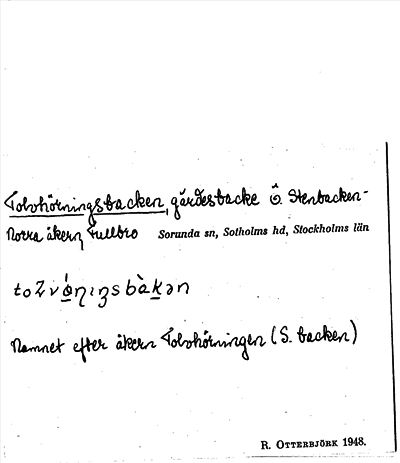 Tolvhörningsbacken, gärdesbacke ö. Stenbacken-
Norra åkern, Fullbro Sorunda sn, Sotholms hd, Stockholms län
Namnet efter åkern Tolvhörningen (S. backen)
R. OTTERBJÖRK 1948.